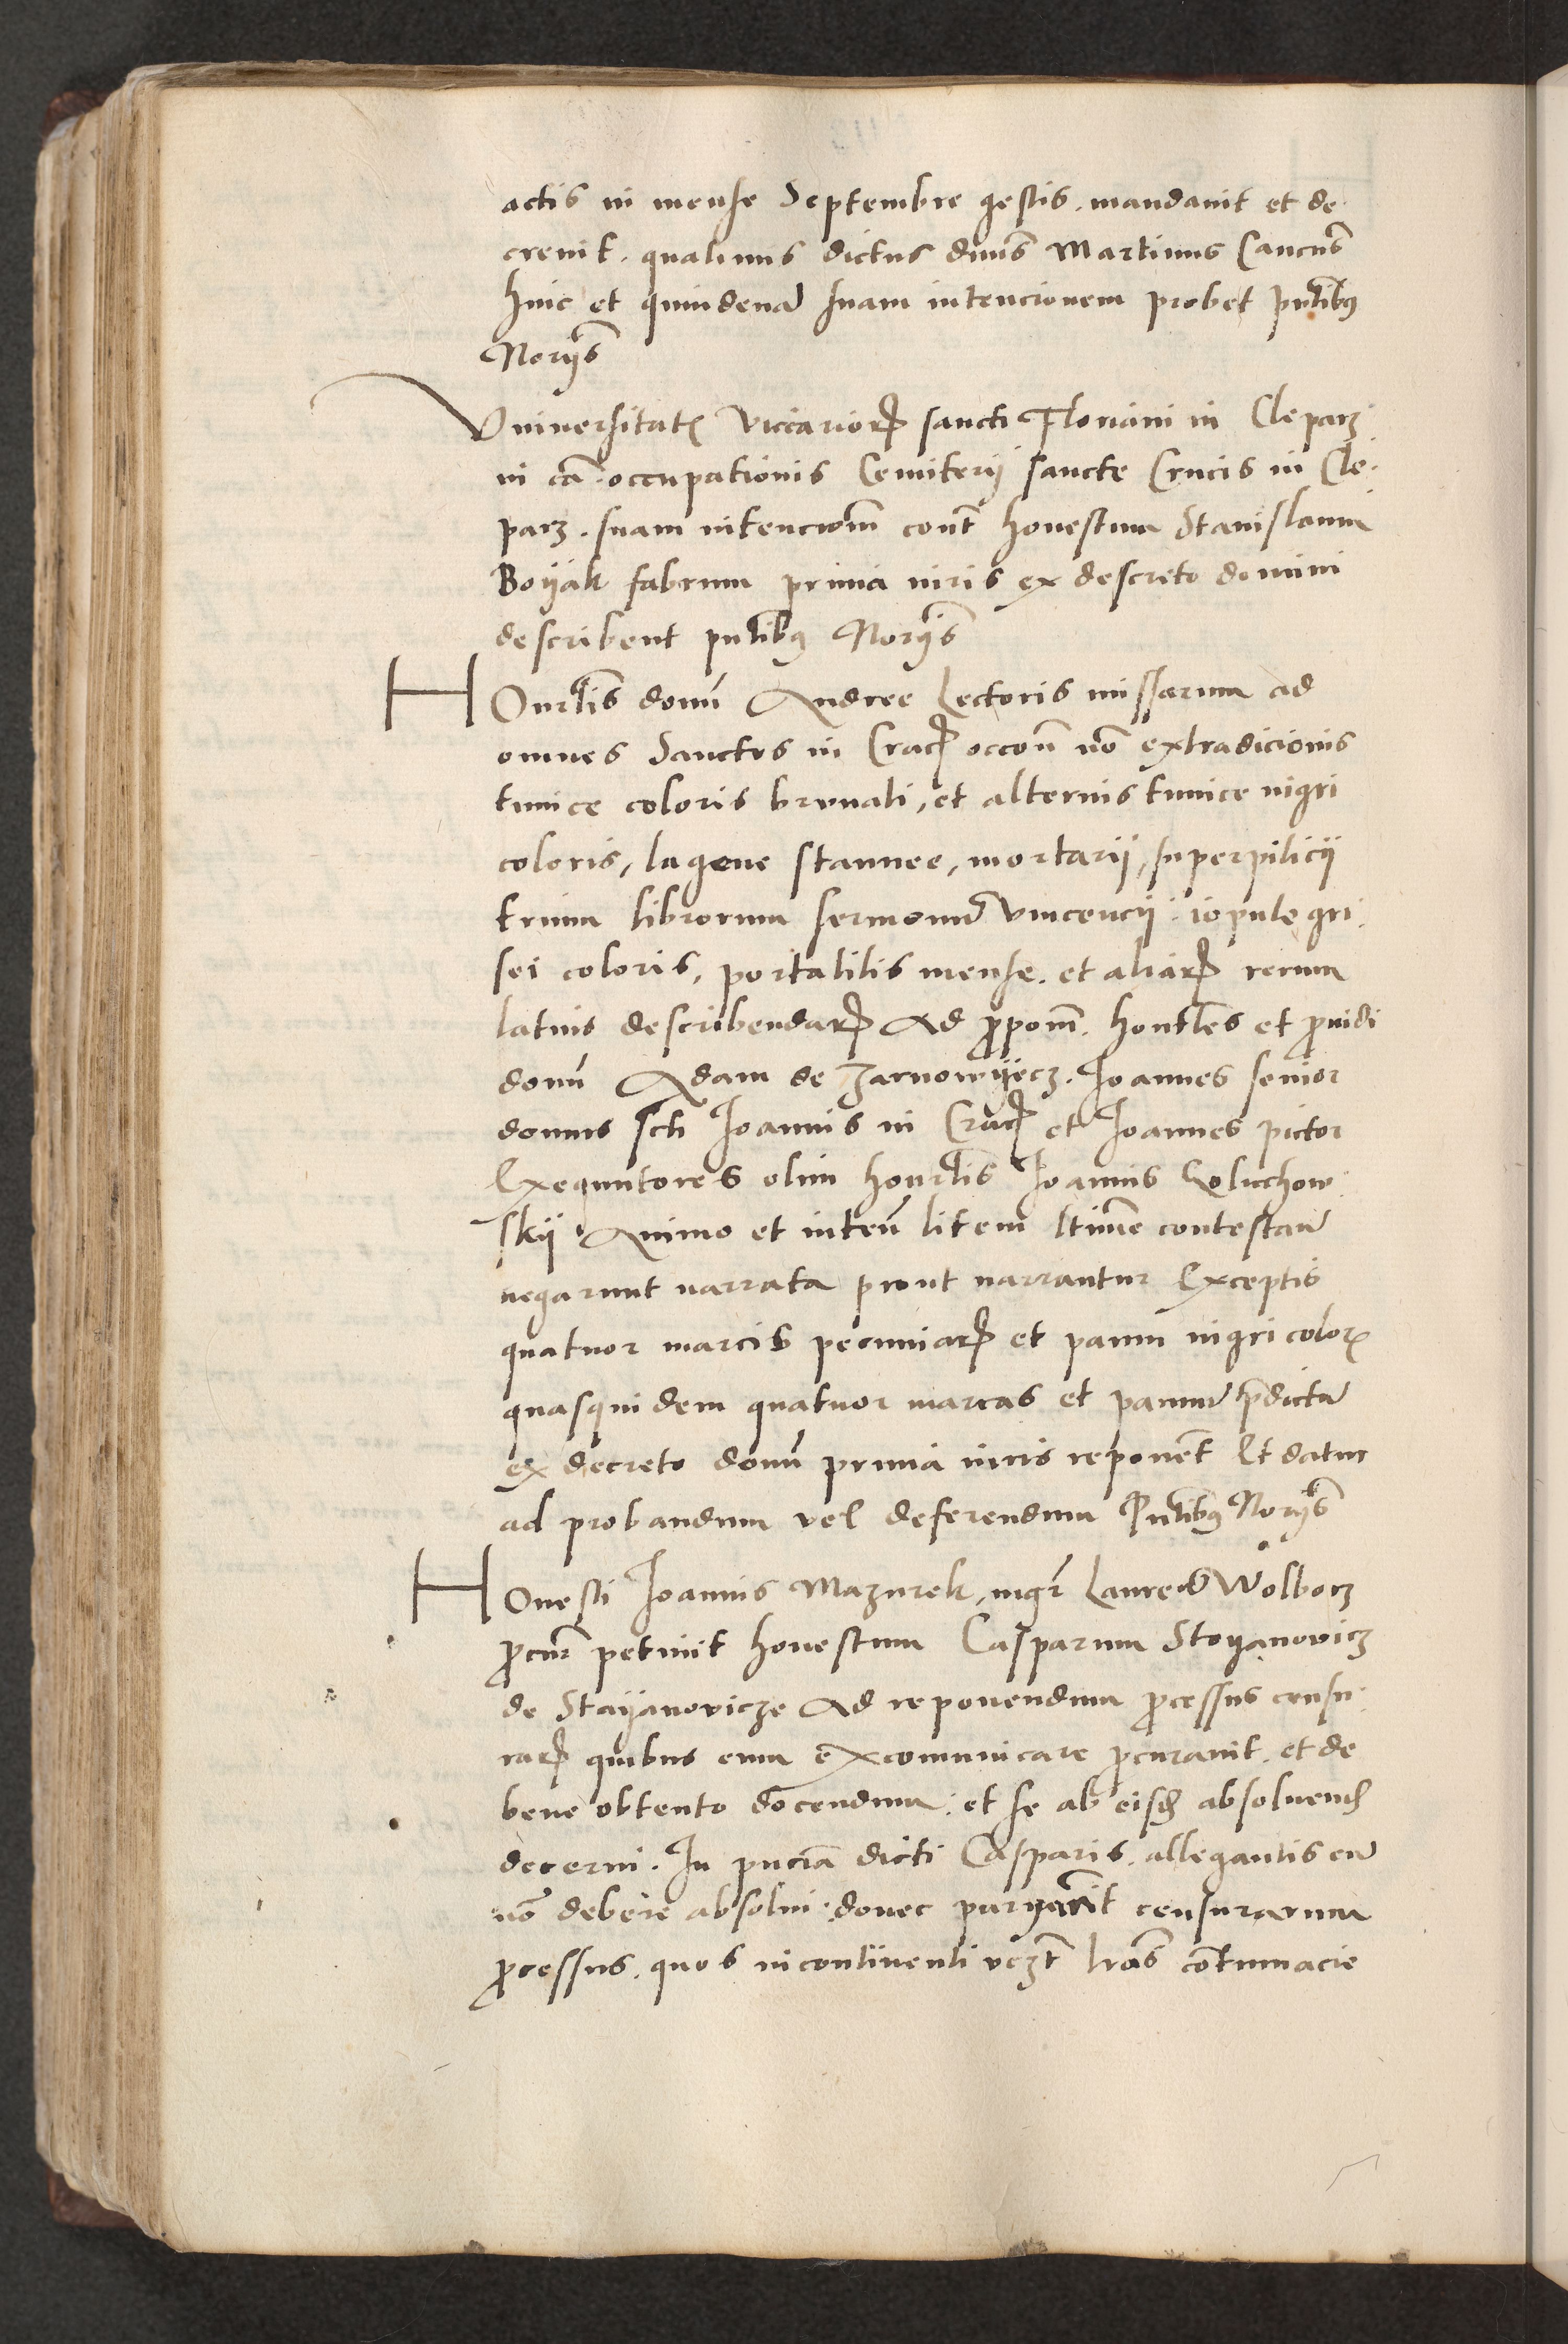 actis in mense Septembre gestis. mandauit et de
creuit. quatinus dictus dnus Martinus Cancus
hinc et quindena suam intencionem probet pntibus
Noriis
Vniuersitatis vicarior sancti Floriani in Cleparz
in ca occupationis Cemiterij sancte Crucis in Cle
parz. suam intencionem cont honestum Stanislaum
Boyak fabrum prima iuris ex descreto domini
describent pntibus Noriis
HOnrlis domi Andree Lectoris missarum ad
omnes Sanctos in Crac occon no extradicionis
tunice coloris brunati, et alternis tunice nigri
coloris, lagene stannee, mortarij, superpilicij
trium librorum sermonum vincencij. iopule gri
sei coloris, portatilis mense. et aliar rerum
latius describendar Ad propom. hontles et prouidi
domi Adam de Zarnowyecz. Joannes senior
domus scti Joannis in Crac et Joannes pictor
Exequutores olim honrlis Joannis Goluchow
skij Animo et inten litem ltime contestan
negarunt narrata prout narrantur Exceptis
quatuor marcis pecuniar et panni nigri coloris
quasquidem quatuor marcas et pannum predictum
ex decreto domi prima iuris reponent Et datur
ad probandum vel deferendum Pntibus Noriis
HOnesti Joannis Mazurek, mgr Laure de Wolborz
procur petiuit honestum Casparum Stoyanovicz
de Stayanovicze Ad reponendum processus censu
rar quibus eum excomunicare procurauit. et de
bene obtento docendum. et se ab eisdem absoluend
decerni. In pncia dicti Casparis. allegantis eum
no debere absolui. donec paruerit censurarum
processus. quos incontinenti vezt lras contumacie